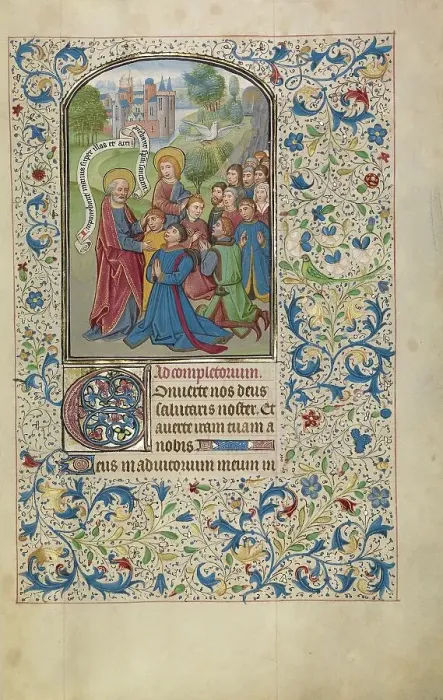 imponebant manus super illos et acci
Ad completorium.
Conuerte nos deus
salutaris noster. Et
auerte iram tuam a
nobis.
Deus in adiutorium meum in